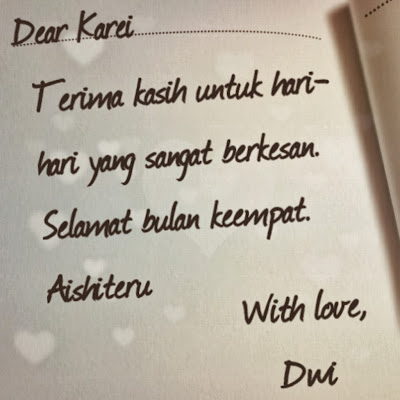 Dear Karei
Terima kasih untuk hari-
hari yang sangat berkesan.
Selamat bulan keempat.
Aishiteru
With love,
Dwi